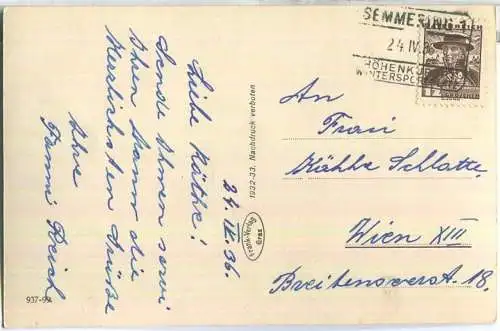 SEMMERING 1
24.IV.36
HÖHENKU
WINTERSPO
24.IV.36.
Liebe Käthe!
Sende Ihnen sowi
Ihren Mann die
Herzlichsten Grüße
Ihre
Fanni Reich
1932-33. Nachdruck verboten
Frank-Verlag
Graz
937-99
An
Frau
Käthe Schlatte
Wien XIII
Breitenseerst. 18.